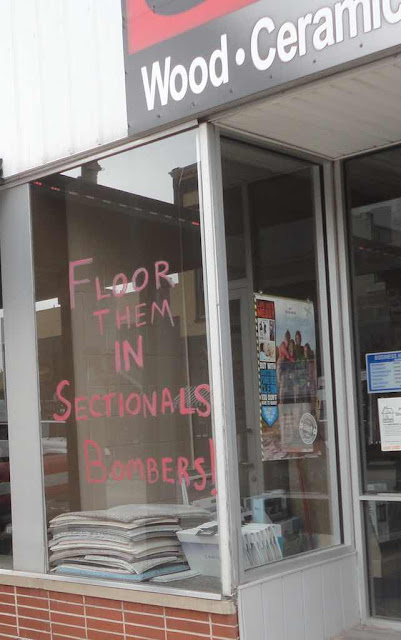 Wood • Ceramic
FLOOR
THEM
IN
SECTIONALS
BOMBERS!